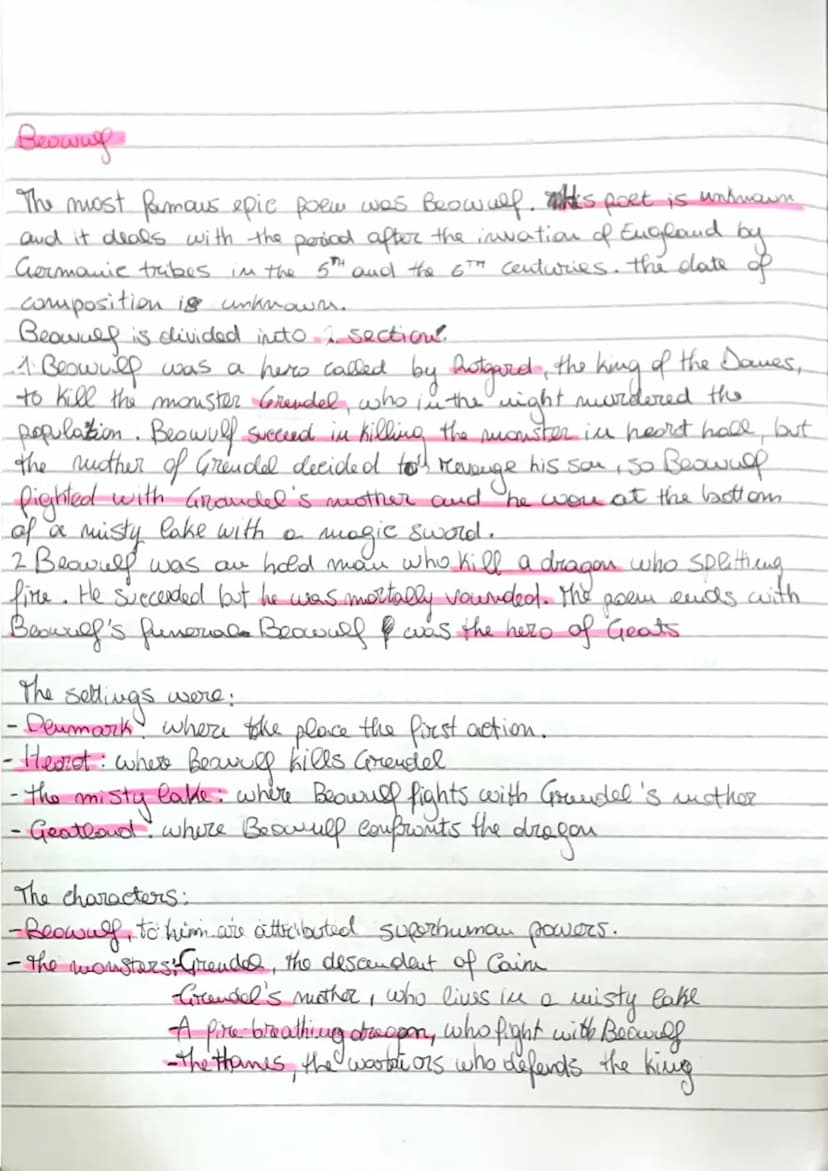 Beowulf
The most famous epic poem was Beowulf. Its poet is unknown
and it deals with the period after the invation of England by
Germanic tribes in the 5TH and the 6TH centuries. The date of
composition is unknown.
Beowulf is divided into 2 sections.
1 Beowulf was a hero called by Rotgard, the king of the Danes,
to kill the monster Grendel, who in the night murdered the
population. Beowulf succeed in killing the monster in heort hall, but
the mother of Grendel decided to revenge his son, so Beowulf
fighted with Grandel's mother and he won at the bottom
of a misty lake with a magic sword.
2 Beowulf was an hold man who kill a dragon who splitting
fire. He succeeded but he was mortally vounded. The poem ends with
Beowulf's funeral. Beowulf was the hero of Geats
The settings were:
- Denmark: where take place the first action.
- Heorot: where Beowulf kills Grendel
- the misty lake: where Beowulf fights with Grandel's mother
- Geatland: where Beowulf confronts the dragon
The characters:
- Beowulf, to him are attributed superhuman powers.
- the monsters: Grendel, the descendent of Cain
- Grendel's mother, who lives in a misty lake
- A fire-breathing dragon, who fight with Beowulf
- the thanes, the warriors who defends the king